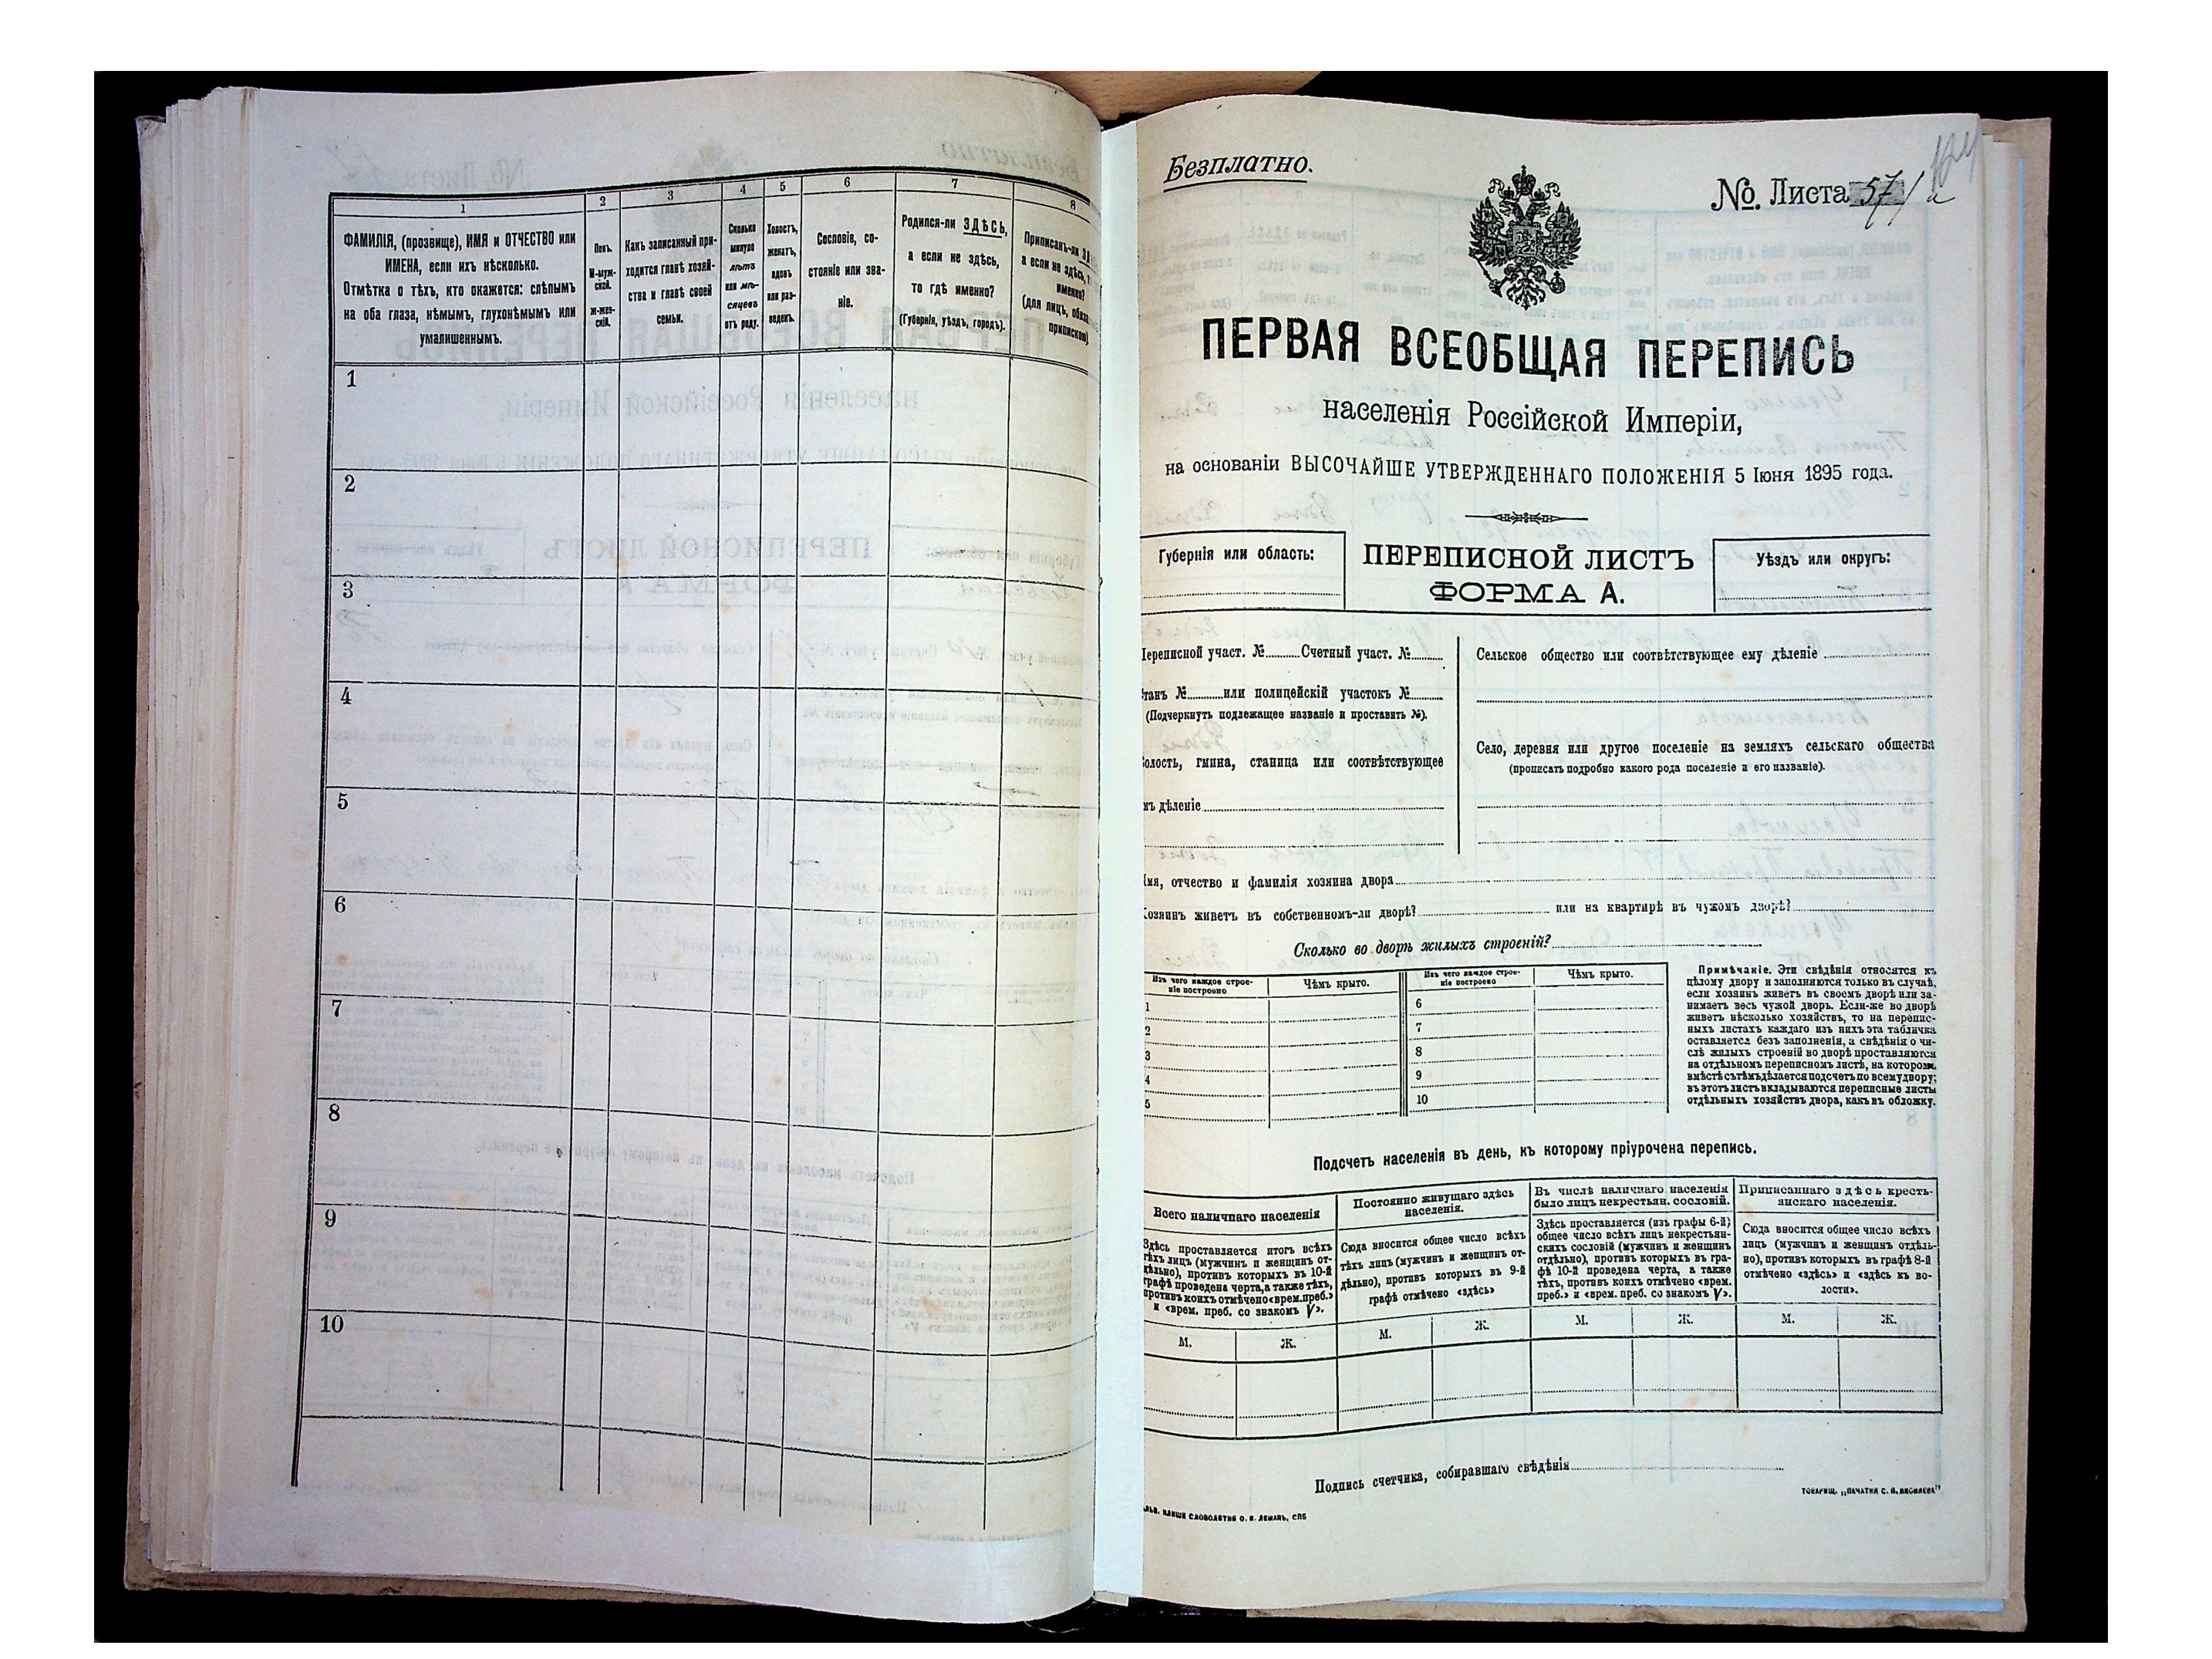 1 2 3 4 5 6 7 8
ФАМИЛІЯ, (прозвище), ИМЯ и ОТЧЕСТВО или
ИМЕНА, если ихъ нѣсколько.
Отмѣтка о тѣхъ, кто окажется: слѣпымъ
на оба глаза, нѣмымъ, глухонѣмымъ или
умалишеннымъ.
Полъ.
М-муж-
ской.
ж-жен-
скій.
Какъ записанный при-
ходится главѣ хозяй-
ства и главѣ своей
семьи.
Сколько
минуло
лѣтъ
или мѣ-
сяцевъ
отъ роду.
Холостъ,
женатъ,
вдовъ
или раз-
веденъ.
Сословіе, со-
стояніе или зва-
ніе.
Родился-ли ЗДѢСЬ,
а если не здѣсь,
то гдѣ именно?
(Губернія, уѣздъ, городъ).
Приписанъ-ли
а если не здѣсь,
именно?
(для лицъ,
припискою)
1
2
3
4
5
6
7
8
9
10
Безплатно.
№. Листа 57/а
124
ПЕРВАЯ ВСЕОБЩАЯ ПЕРЕПИСЬ
населенія Россійской Имперіи,
на основаніи ВЫСОЧАЙШЕ УТВЕРЖДЕННАГО ПОЛОЖЕНІЯ 5 Іюня 1895 года.
Губернія или область:
ПЕРЕПИСНОЙ ЛИСТЪ
ФОРМА А.
Уѣздъ или округъ:
Переписной участ. № Счетный участ. №
танъ № или полицейскій участокъ №
(Подчеркнуть подлежащее названіе и проставить №).
олость, гмина, станица или соотвѣтствующее
мъ дѣленіе
Сельское общество или соотвѣтствующее ему дѣленіе
Село, деревня или другое поселеніе на земляхъ сельскаго общества
(прописать подробно какого рода поселеніе и его названіе).
Имя, отчество и фамилія хозяина двора
Хозяинъ живетъ въ собственномъ-ли дворѣ? или на квартирѣ въ чужомъ дворѣ?
Сколько во дворѣ жилыхъ строеній?
Изъ чего каждое строе-
ніе построено
Чѣмъ крыто.
Изъ чего каждое строе-
ніе построено
Чѣмъ крыто.
1 6
2 7
3 8
4 9
5 10
Примѣчаніе. Эти свѣдѣнія относятся къ
цѣлому двору и заполняются только въ случаѣ,
если хозяинъ живетъ въ своемъ дворѣ или за-
нимаетъ весь чужой дворъ. Если-же во дворѣ
живетъ нѣсколько хозяйствъ, то на перепис-
ныхъ листахъ каждаго изъ нихъ эта табличка
оставляется безъ заполненія, а свѣдѣнія о чи-
слѣ жилыхъ строеній во дворѣ проставляются
на отдѣльномъ переписномъ листѣ, на которомъ
вмѣстѣ съ тѣмъ дѣлается подсчетъ по всему двору;
въ этотъ листъ вкладываются переписные листы
отдѣльныхъ хозяйствъ двора, какъ въ обложку.
Подсчетъ населенія въ день, къ которому пріурочена перепись.
Всего наличнаго населенія
Здѣсь проставляется итогъ всѣхъ
тѣхъ лицъ (мужчинъ и женщинъ от-
дѣльно), противъ которыхъ въ 10-й
графѣ проведена черта, а также тѣхъ,
противъ коихъ отмѣчено «врем. преб.»
и «врем. преб. со знакомъ V».
Постоянно живущаго здѣсь
населенія.
Сюда вносится общее число всѣхъ
тѣхъ лицъ (мужчинъ и женщинъ от-
дѣльно), противъ которыхъ въ 9-й
графѣ отмѣчено «здѣсь»
Въ числѣ наличнаго населенія
было лицъ некрестьян. сословій.
Здѣсь проставляется (изъ графы 6-й)
общее число всѣхъ лицъ некрестьян-
скихъ сословій (мужчинъ и женщинъ
отдѣльно), противъ которыхъ въ гра-
фѣ 10-й проведена черта, а также
тѣхъ, противъ коихъ отмѣчено «врем.
преб.» и «врем. преб. со знакомъ V».
Приписаннаго здѣсь кресть-
янскаго населенія.
Сюда вносится общее число всѣхъ
лицъ (мужчинъ и женщинъ отдѣль-
но), противъ которыхъ въ графѣ 8-й
отмѣчено «здѣсь» и «здѣсь къ во-
лости».
М. Ж. М. Ж. М. Ж. М. Ж.
Подпись счетчика, собиравшаго свѣдѣнія
КЛИШЕ СЛОВОЛИТНИ О. И. ЛЕМАНЪ, СПБ
ТОВАРИЩ. „ПЕЧАТНЯ С. П. ЯКОВЛЕВА"